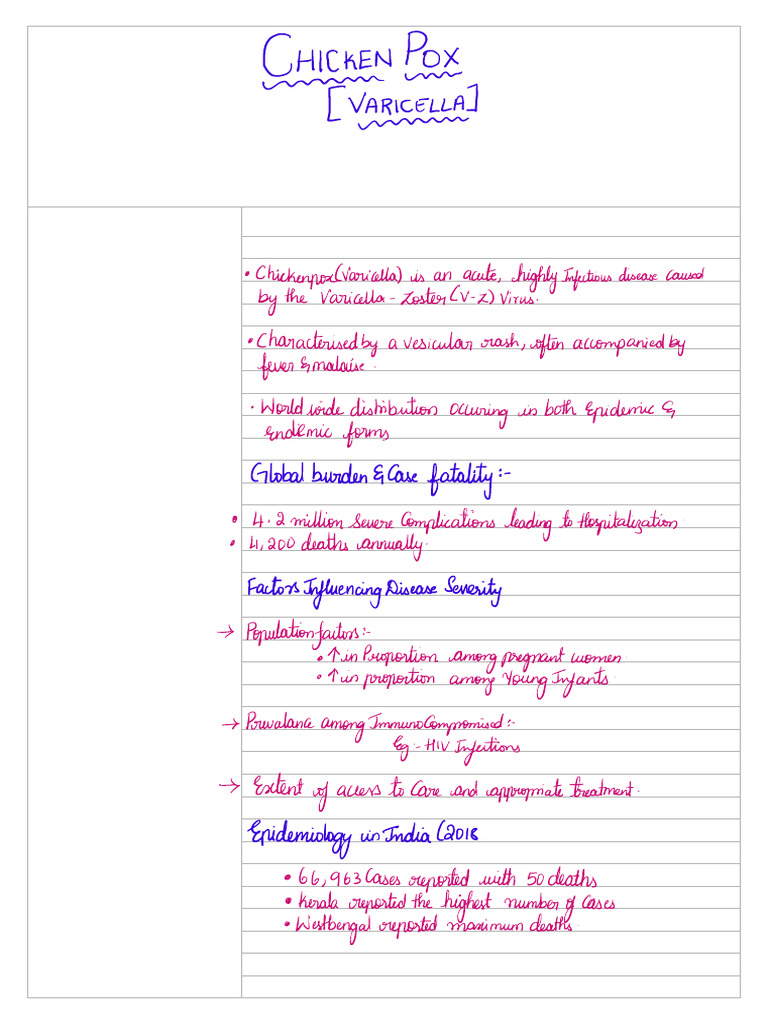 CHICKEN POX
[VARICELLA]
• Chickenpox (Varicella) is an acute, highly Infectious disease caused
by the Varicella - Zoster (V-Z) Virus.
• Characterised by a vesicular rash, often accompanied by
fever & malaise.
• World wide distribution occuring in both Epidemic &
Endemic forms
Global burden & Case fatality:-
• 4.2 million Severe Complications leading to Hospitalization
• 4,200 deaths annually.
Factors Influencing Disease Severity
→ Population factors:-
• ↑ in Proportion among pregnant women
• ↑ in proportion among Young Infants.
→ Prevalance among ImmunoCompromised:-
Eg:- HIV Infections
→ Extent of access to Care and appropriate treatment.
Epidemiology in India (2018
• 66,963 Cases reported with 50 deaths
• Kerala reported the highest number of Cases
• Westbengal reported maximum deaths.